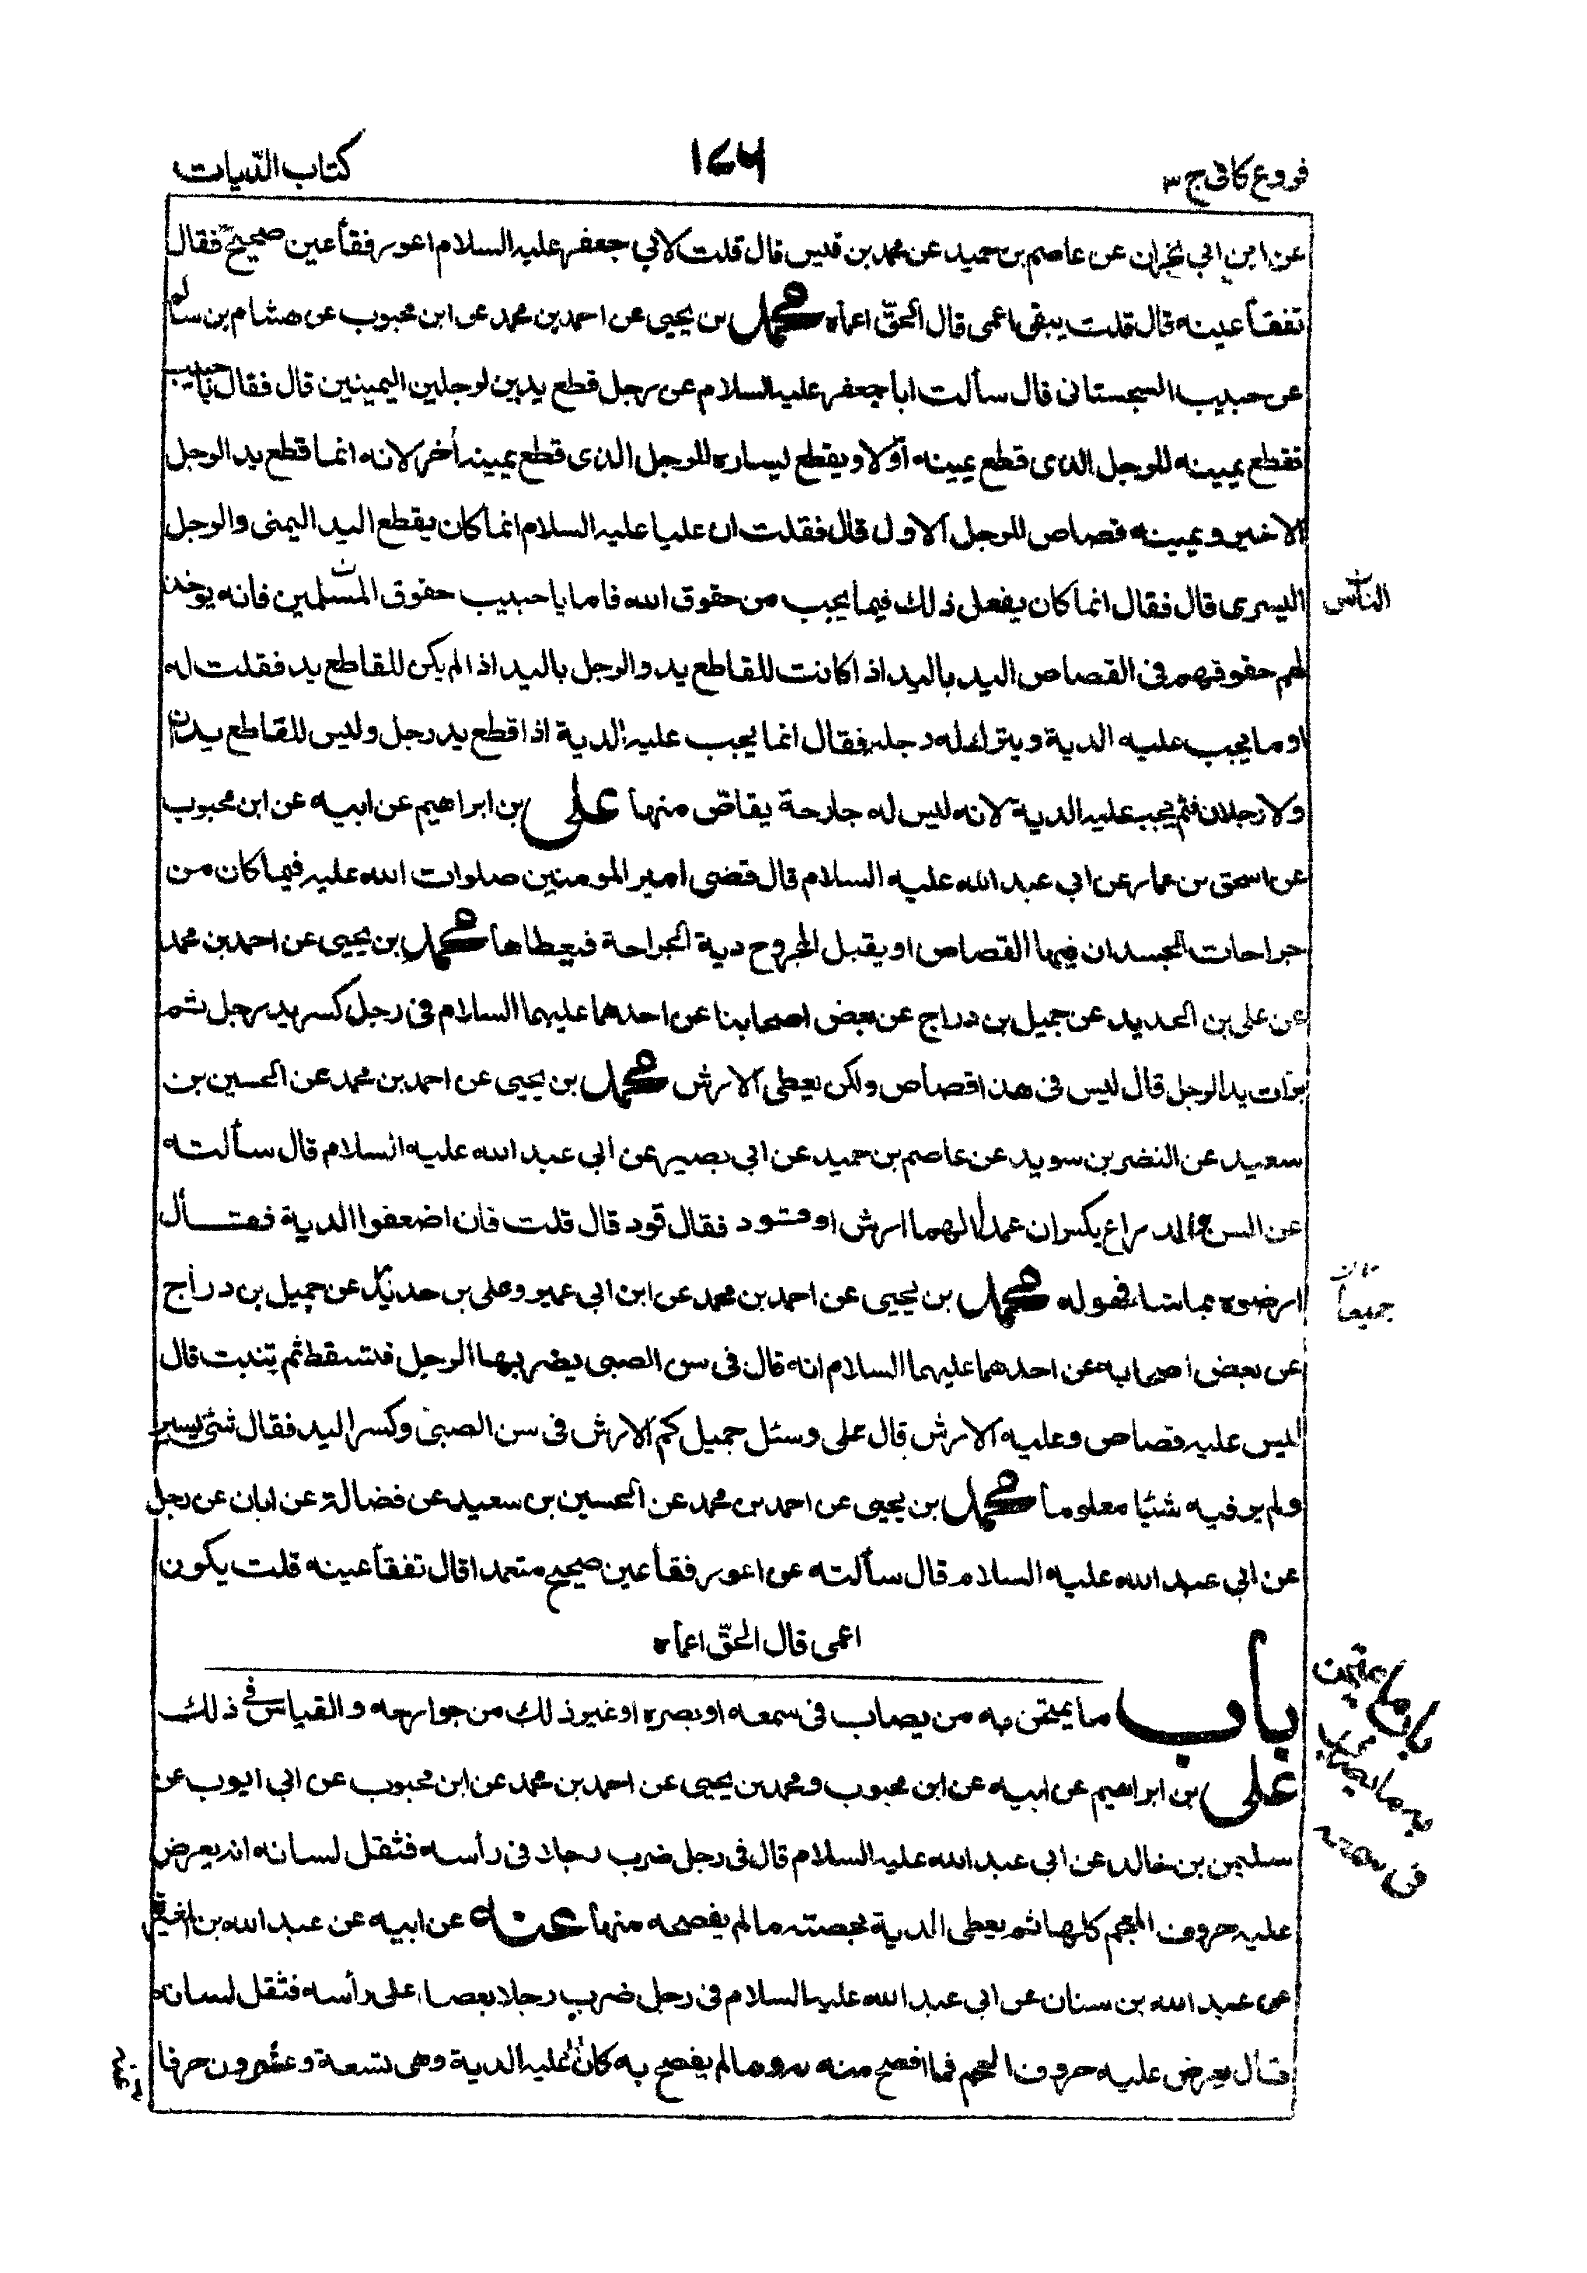 فروع كافى ج ٣
١٧٦
كتاب الدّيات
عن ابن ابي نجران عن عاصم بن حميد عن محمد بن قيس قال قلت لابي جعفر عليه السلام اعور فقأ عين صحيح فقال
تفقأ عينه قال قلت يبقى اعمى قال الحقّ اعماه محمد بن يحيى عن احمد بن محمد عن ابن محبوب عن هشام بن سالم
عن حبيب السجستانى قال سألت ابا جعفر عليه السلام عن رجل قطع يدين لرجلين اليمينين قال فقال يا حبيب
تقطع يمينه للرجل الذى قطع يمينه اوّلا ويقطع يساره للرجل الذى قطع يمينه أخرا لانه انما قطع يد الرجل
الاخير ويمينه قصاص للرجل الاول قال فقلت ان عليا عليه السلام انما كان يقطع اليد اليمنى والرجل
اليسرى قال فقال انما كان يفعل ذلك فيما يجب من حقوق الله فاما يا حبيب حقوق المسلمين فانه يوخذ
الناس
لهم حقوقهم فى القصاص اليد باليد اذا كانت للقاطع يد والرجل باليد اذا لم يكن للقاطع يد فقلت له
او ما يجب عليه الدية ويترك له رجله فقال انما يجب عليه الدية اذا قطع يد رجل وليس للقاطع يدان
ولا رجلان فثم يجب عليه الدية لانه ليس له جارحة يقاصّ منها على بن ابراهيم عن ابيه عن ابن محبوب
عن اسحق بن عمار عن ابي عبد الله عليه السلام قال قضى امير المومنين صلوات الله عليه فيما كان من
جراحات الجسد ان فيها القصاص او يقبل المجروح دية الجراحة فيعطاها محمد بن يحيى عن احمد بن محمد
عن على بن الحديد عن جميل بن دراج عن بعض اصحابنا عن احدهما عليهما السلام فى رجل كسر يد رجل ثم
برأت يد الرجل قال ليس فى هذا قصاص ولكن يعطى الارش محمد بن يحيى عن احمد بن محمد عن الحسين بن
سعيد عن النضر بن سويد عن عاصم بن حميد عن ابي بصير عن ابي عبد الله عليه السلام قال سألته
عن السن والذراع يكسران عمدا الهما ارش او قود فقال قود قال قلت فان اضعفوا الدية فقال
ارضوه بما شاء فهو له محمد بن يحيى عن احمد بن محمد عن ابن ابي عمير وعلى بن حديد عن جميل بن دراج
جميعاً
عن بعض اصحابه عن احدهما عليهما السلام انه قال فى سن الصبى يضربها الرجل فتسقط ثم يتنبت قال
ليس عليه قصاص وعليه الارش قال على وسئل جميل كم الارش فى سن الصبى وكسر اليد فقال شئ يسير
ولم ير فيه شيًا معلوما محمد بن يحيى عن احمد بن محمد عن الحسين بن سعيد عن فضالة عن ابان عن رجل
عن ابي عبد الله عليه السلام قال سألته عن اعور فقأ عين صحيح متعمدا قال تفقأ عينه قلت يكون
اعمى قال الحقّ اعماه
باب ما يمتحن به من يصاب فى سمعه او بصره او غير ذلك من جوارحه والقياس فى ذلك
على بن ابراهيم عن ابيه عن ابن محبوب ومحمد بن يحيى عن احمد بن محمد عن ابن محبوب عن ابي ايوب عن
سليمن بن خالد عن ابي عبد الله عليه السلام قال فى رجل ضرب رجلا فى رأسه فثقل لسانه انه يعرض
عليه حروف المعجم كلها ثم يعطى الدية بحصته ما لم يفصحه منها عنه عن ابيه عن عبد الله بن المغيرة
عن عبد الله بن سنان عن ابي عبد الله عليه السلام فى رجل ضرب رجلا بعصا على رأسه فثقل لسانه
قال يعرض عليه حروف المعجم فما افصح منه وما لم يفصح به كان عليه الدية وهى تسعة وعشرون حرفا